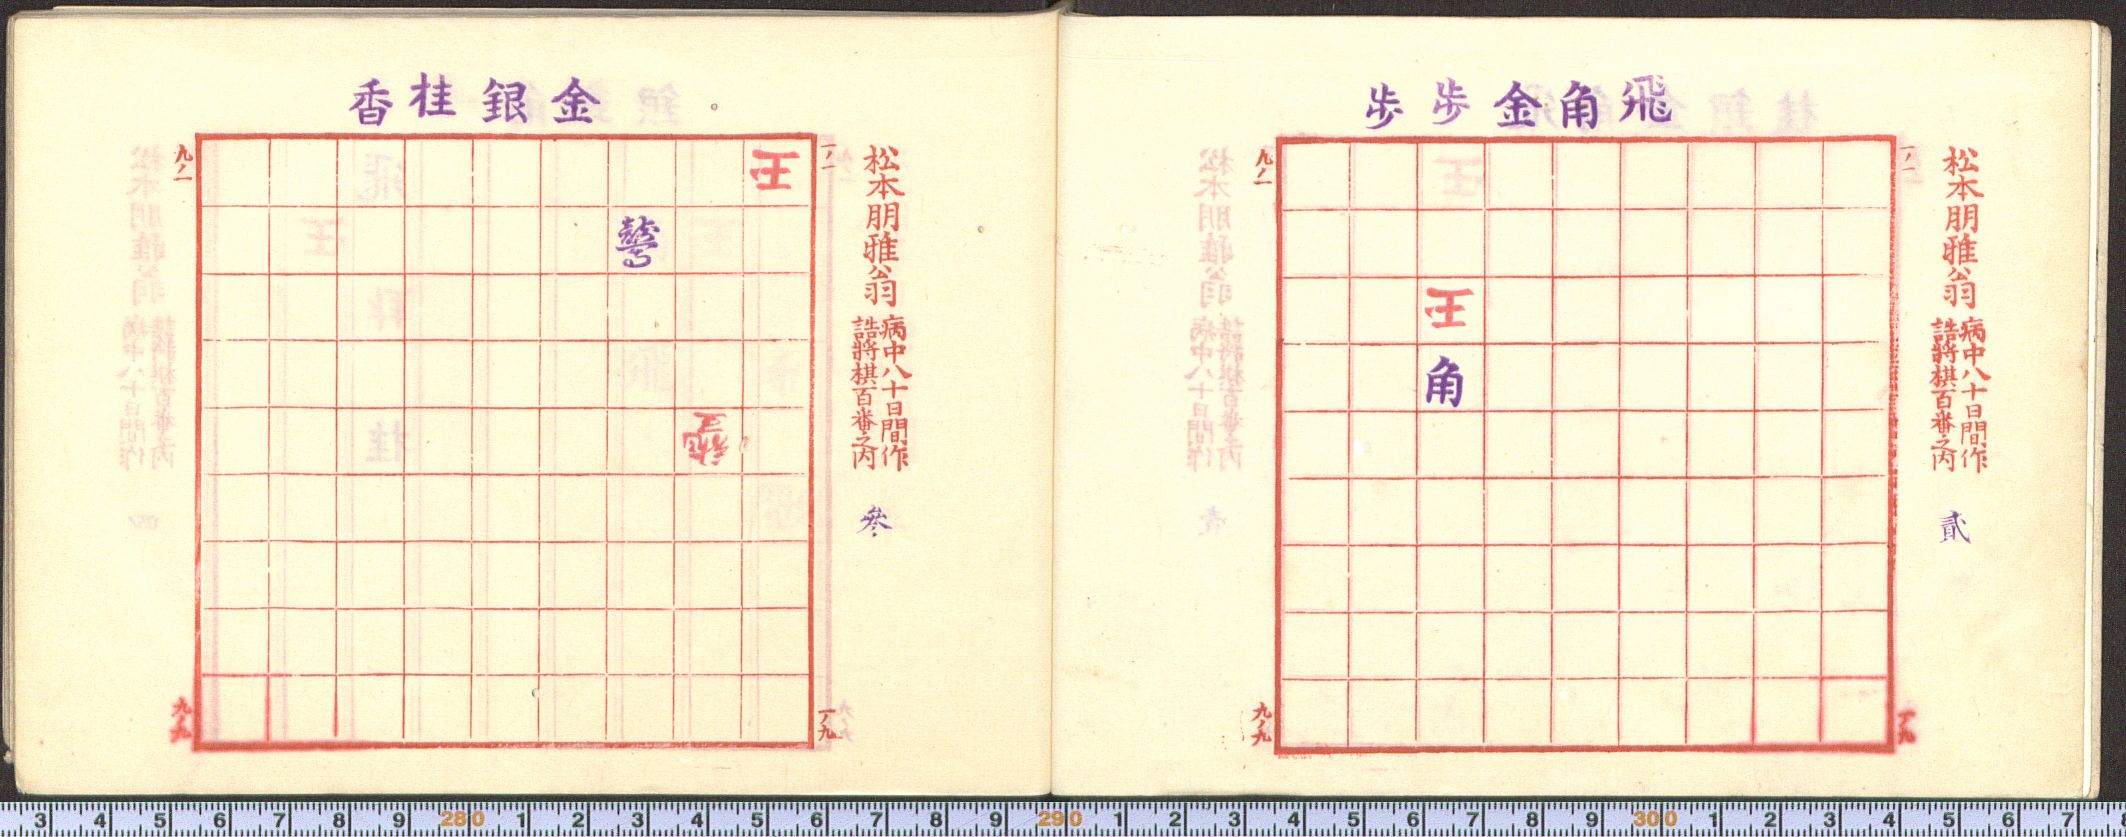 飛角金歩歩
松本朋雅翁
病中八十日間作
詰將棋百番之内
貳
一ノ一
九ノ一
王
角
一ノ九
九ノ九
金銀桂香
松本朋雅翁
病中八十日間作
詰將棋百番之内
参
一ノ一
九ノ一
王
一ノ九
九ノ九
3 4 5 6 7 8 9 280 1 2 3 4 5 6 7 8 9 290 1 2 3 4 5 6 7 8 9 300 1 2 3 4 5 6 7